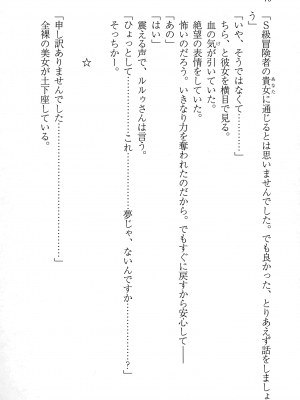 「Ｓ級冒険者の貴女に通じるとは思いませんでした。でも良かった、とりあえず話をしましょ
う」
「いや、そうではなくて……」
ちら、と彼女を横目で見る。
血の気が引いていた。
絶望の表情をしていた。
怖いのだろう。いきなり力を奪われたのだから。でもすぐに戻すから安心して――
「あの」
「はい」
震える声で、ルルゥさんは言う。
「ひょっとして…………これ…………夢じゃ、ないんですか…………？」
そっちかー。
☆
「申し訳ありませんでした…………………」
全裸の美女が土下座している。